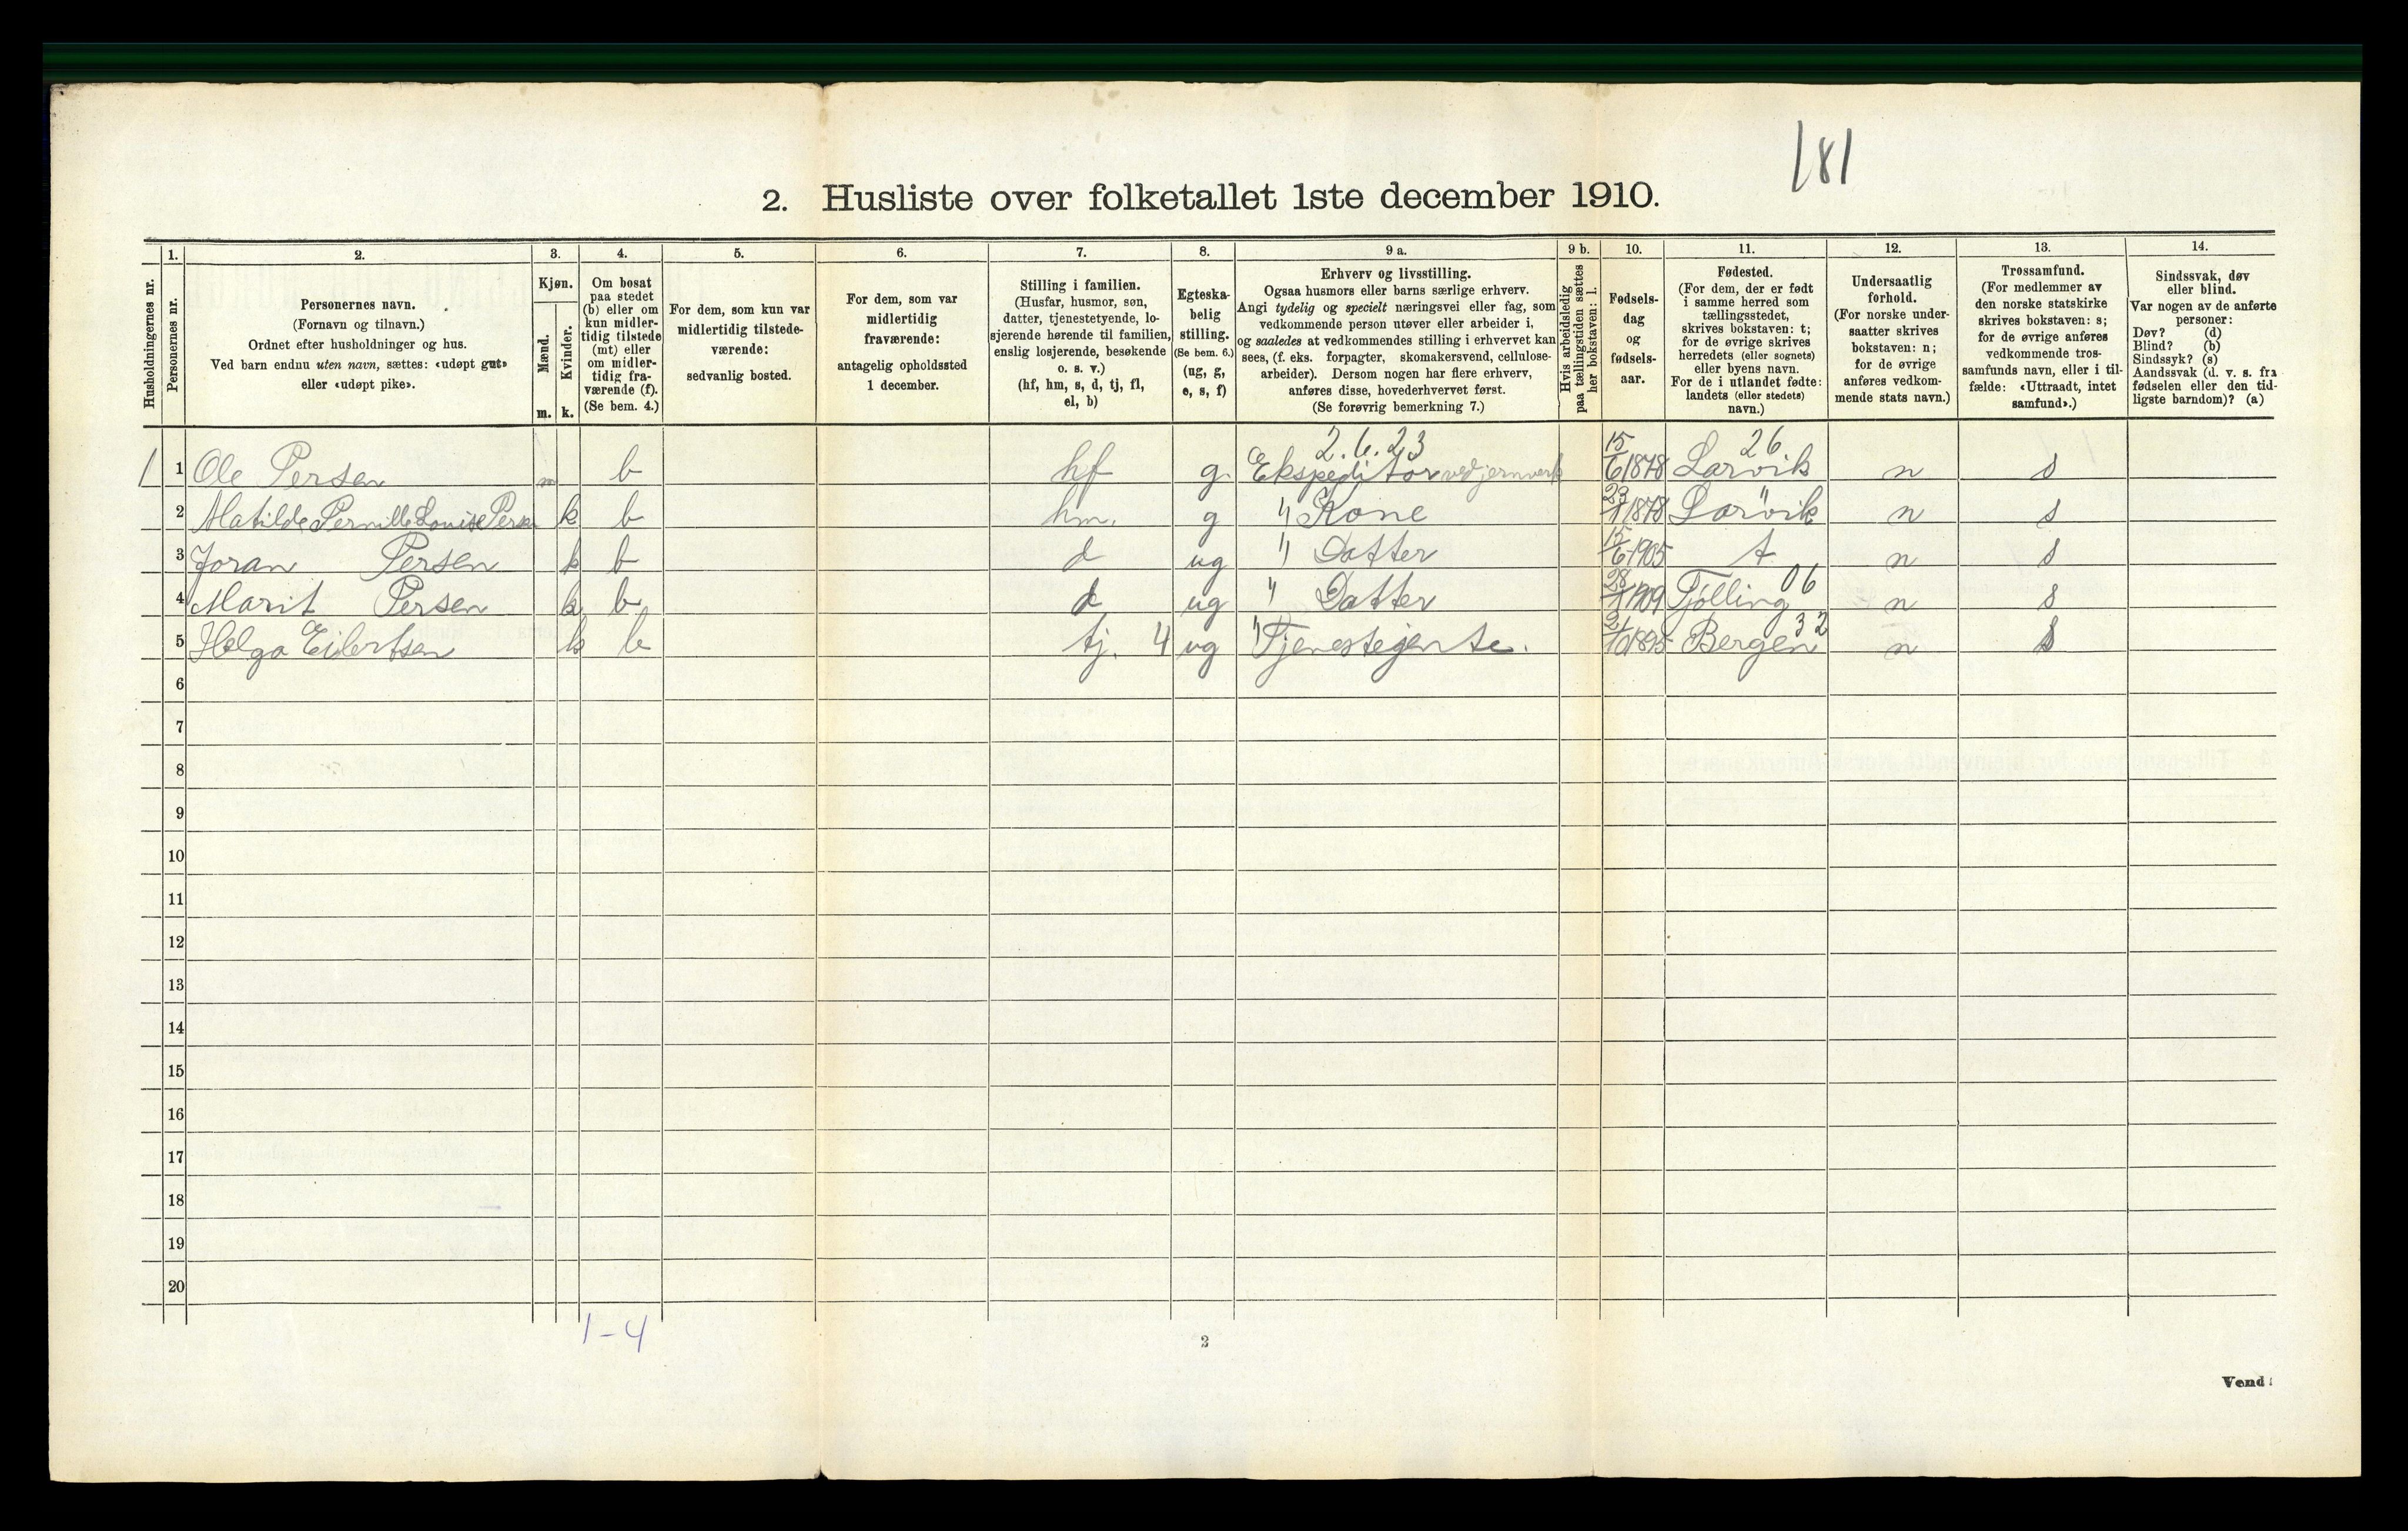 181
2. Husliste over folketallet 1ste december 1910.
Husholdningernes nr.
1.
Personernes nr.
2.
Personernes navn.
(Fornavn og tilnavn.)
Ordnet efter husholdninger og hus.
Ved barn endnu uten navn, sættes: «udøpt gut»
eller «udøpt pike».
3.
Kjøn.
Mænd.
Kvinder.
m. k.
4.
Om bosat
paa stedet
(b) eller om
kun midler-
tidig tilstede
(mt) eller
om midler-
tidig fra-
værende (f).
(Se bem. 4.)
5.
For dem, som kun var
midlertidig tilstede-
værende:
sedvanlig bosted.
6.
For dem, som var
midlertidig
fraværende:
antagelig opholdssted
1 december.
7.
Stilling i familien.
(Husfar, husmor, søn,
datter, tjenestetyende, lo-
sjerende hørende til familien,
enslig losjerende, besøkende
o. s. v.)
(hf, hm, s, d, tj, fl,
el, b)
8.
Egteska-
belig
stilling.
(Se bem. 6.)
(ug, g,
e, s, f)
9 a.
Erhverv og livsstilling.
Ogsaa husmors eller barns særlige erhverv.
Angi tydelig og specielt næringsvei eller fag, som
vedkommende person utøver eller arbeider i,
og saaledes at vedkommendes stilling i erhvervet kan
sees, (f. eks. forpagter, skomakersvend, cellulose-
arbeider). Dersom nogen har flere erhverv,
anføres disse, hovederhvervet først.
(Se forøvrig bemerkning 7.)
9 b.
Hvis arbeidsledig
paa tællingstiden sættes
her bokstaven: l.
10.
Fødsels-
dag
og
fødsels-
aar.
11.
Fødested.
(For dem, der er født
i samme herred som
tællingsstedet,
skrives bokstaven: t;
for de øvrige skrives
herredets (eller sognets)
eller byens navn.
For de i utlandet fødte:
landets (eller stedets)
navn.)
12.
Undersaatlig
forhold.
(For norske under-
saatter skrives
bokstaven: n;
for de øvrige
anføres vedkom-
mende stats navn.)
13.
Trossamfund.
(For medlemmer av
den norske statskirke
skrives bokstaven: s;
for de øvrige anføres
vedkommende tros-
samfunds navn, eller i til-
fælde: «Uttraadt, intet
samfund».)
14.
Sindssvak, døv
eller blind.
Var nogen av de anførte
personer:
Døv? (d)
Blind? (b)
Sindssyk? (s)
Aandssvak (d. v. s. fra
fødselen eller den tid-
ligste barndom)? (a)
2.6.23 26
1 1 Ole Persen m b hf g. Ekspeditor ved jernverk 15/6 1878 Larvik n s
2 Matilde Pernille Louise Persen k b hm. g " Kone 1878 Larvik " n s
3 Joran Persen k b d ug " Datter 15/6 1905 t n s
4 Marit Persen k b d ug " Datter 1909 Tjølling 06 n s
5 Helga Eilertsen k b tj. 4 ug " Tjenestejente. 1895 Bergen 32 n s
6
7
8
9
10
11
12
13
14
15
16
17
18
19
20
1-4
2
Vend!